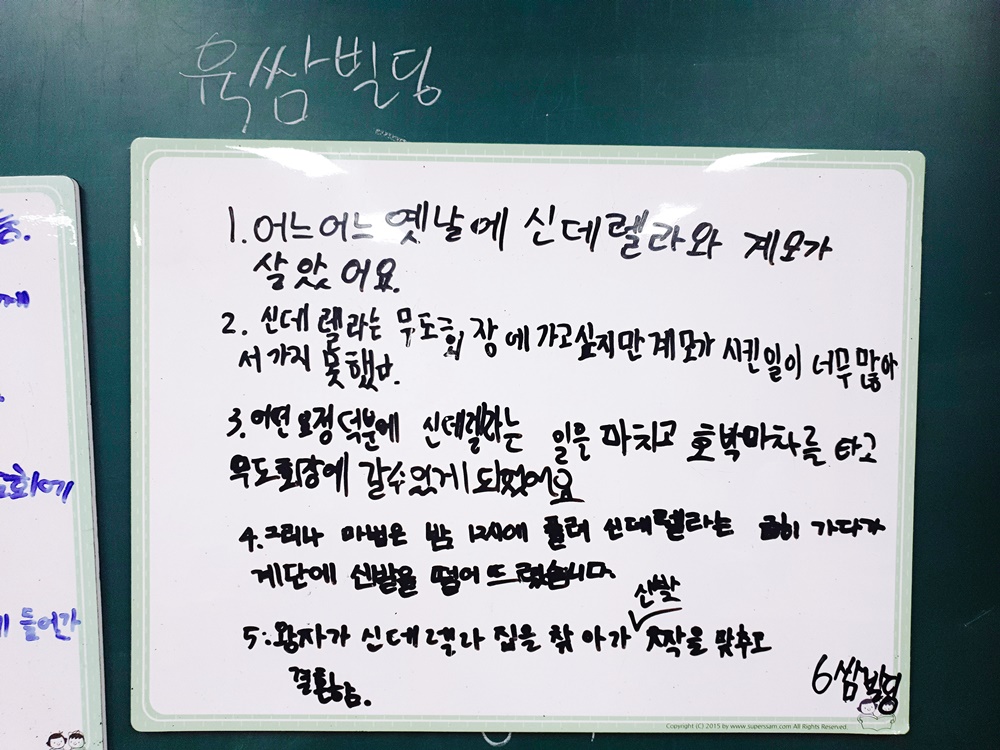 육쌈빌딩
1. 어느어느 옛날에 신데렐라와 계모가
살았어요.
2. 신데렐라는 무도회장에 가고싶지만 계모가 시킨일이 너무많아
서 가지 못했다.
3. 어떤 요정 덕분에 신데렐라는 일을 마치고 호박마차를 타고
무도회장에 갈수있게 되었어요
4. 그러나 마법은 밤 12시에 풀려 신데렐라는 급히 가다가
계단에 신발을 떨어뜨렸습니다.
신발
5. 왕자가 신데렐라 집을 찾아가 짝을 맞추고
결혼함.
6쌈빌딩
Copyright (C) 2015 by www.superssam.com All Rights Reserved.
들어가